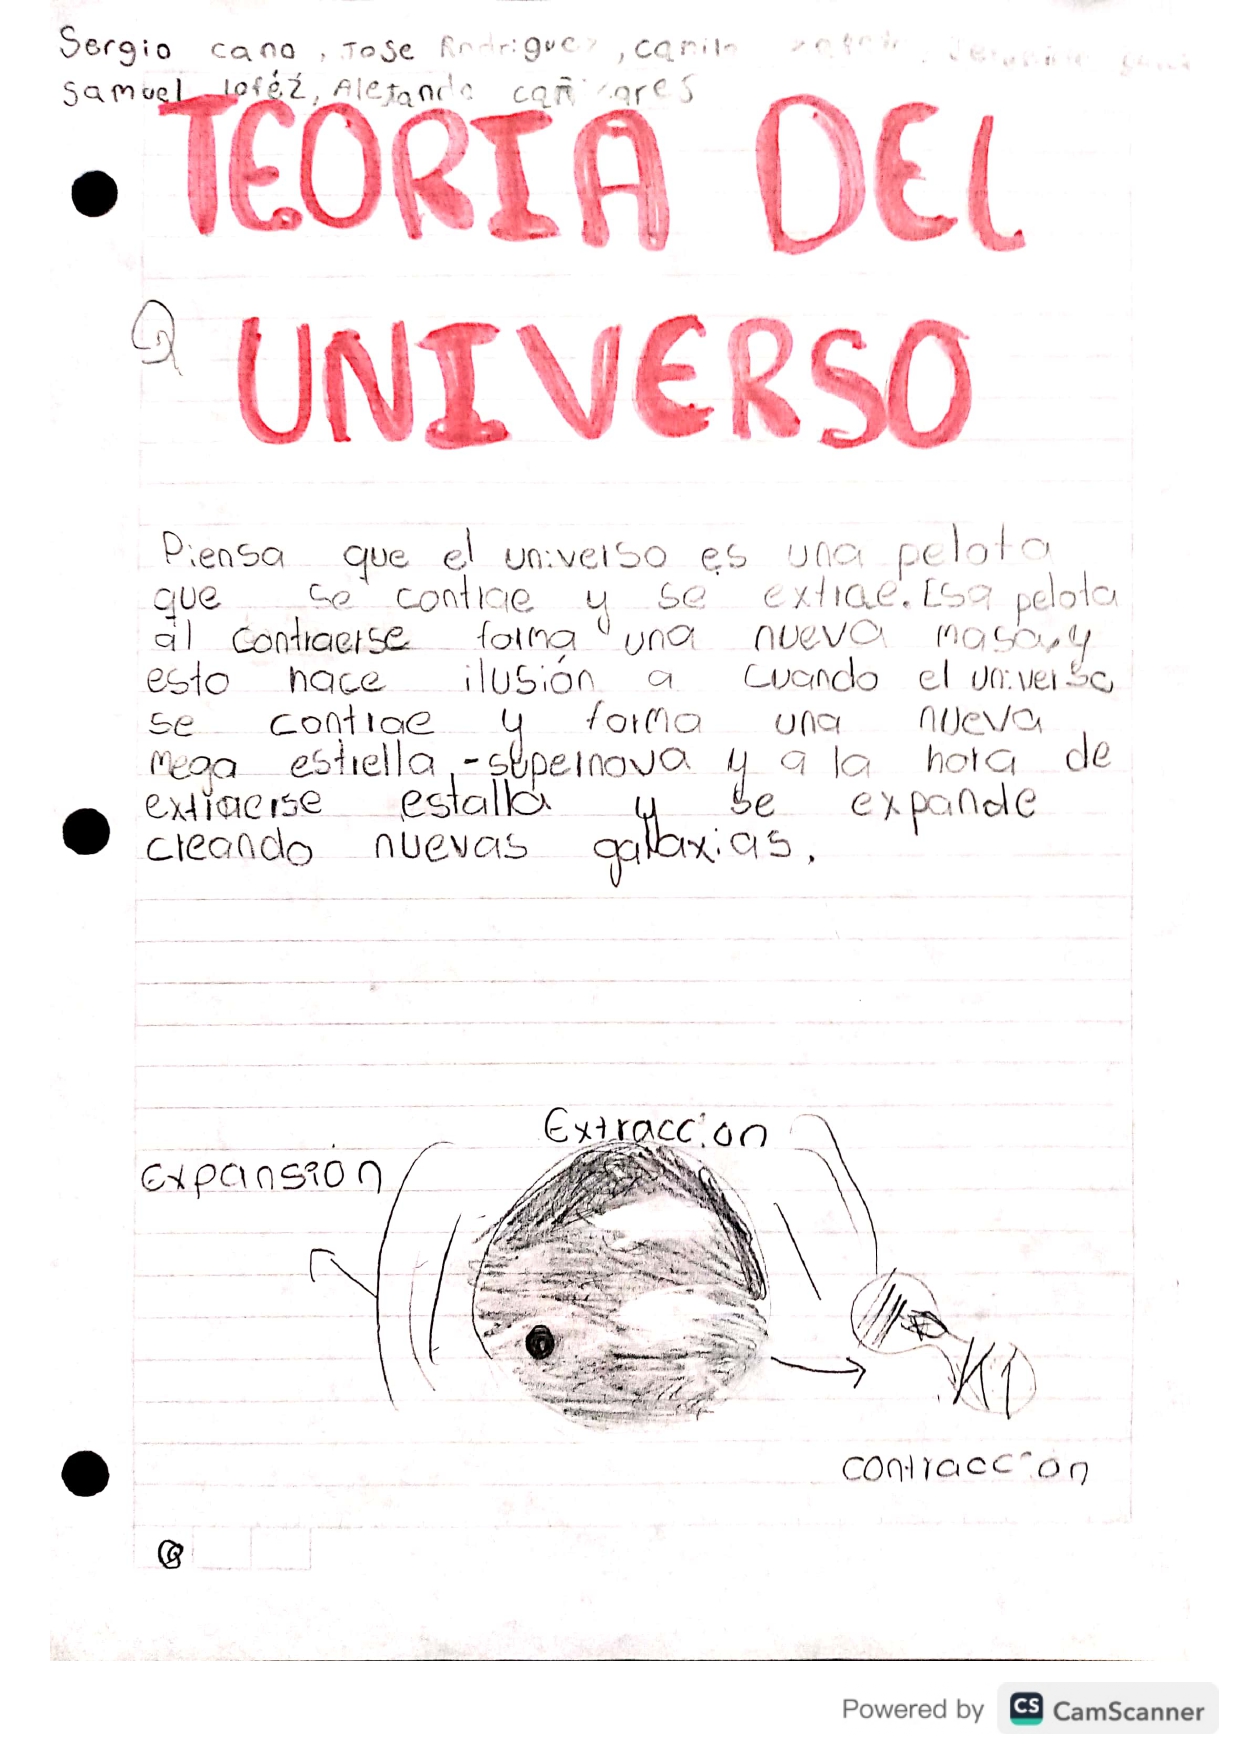 Sergio cano, Jose Rodriguez, camilo
Samuel lopéz, Alejandro cañizares
TEORIA DEL
UNIVERSO
Piensa que el universo es una pelota
que se contrae y se extrae. Esa pelota
al contraerse forma una nueva masa, y
esto hace ilusión a cuando el universo
se contrae y forma una nueva
mega estrella,-supernova y a la hora de
extraerse estalla y se expande
creando nuevas galaxias.
Extraccion
Expansión
contraccion
Powered by CS CamScanner